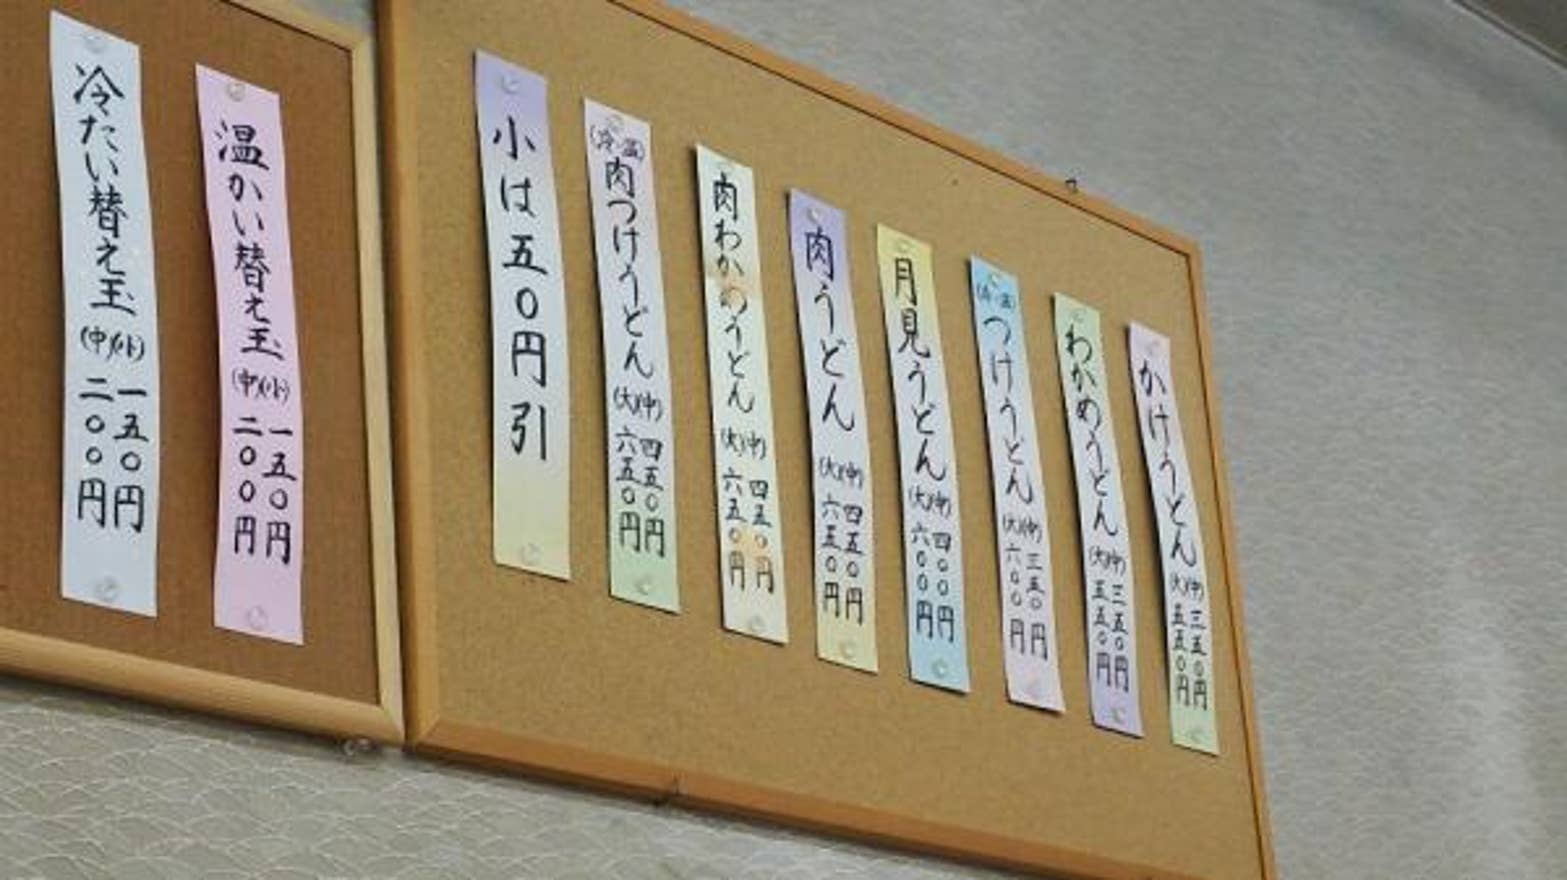 かけうどん
(中)三五〇円
(大)五五〇円
わかめうどん
(中)三五〇円
(大)五五〇円
(冷・温)
つけうどん
(中)三五〇円
(大)六〇〇円
月見うどん
(中)四〇〇円
(大)六〇〇円
肉うどん
(中)四五〇円
(大)六五〇円
肉わかめうどん
(中)四五〇円
(大)六五〇円
(冷・温)
肉つけうどん
(中)四五〇円
(大)六五〇円
小は五〇円引
温かい替え玉
(小)一五〇円
(中)二〇〇円
冷たい替え玉
(小)一五〇円
(中)二〇〇円